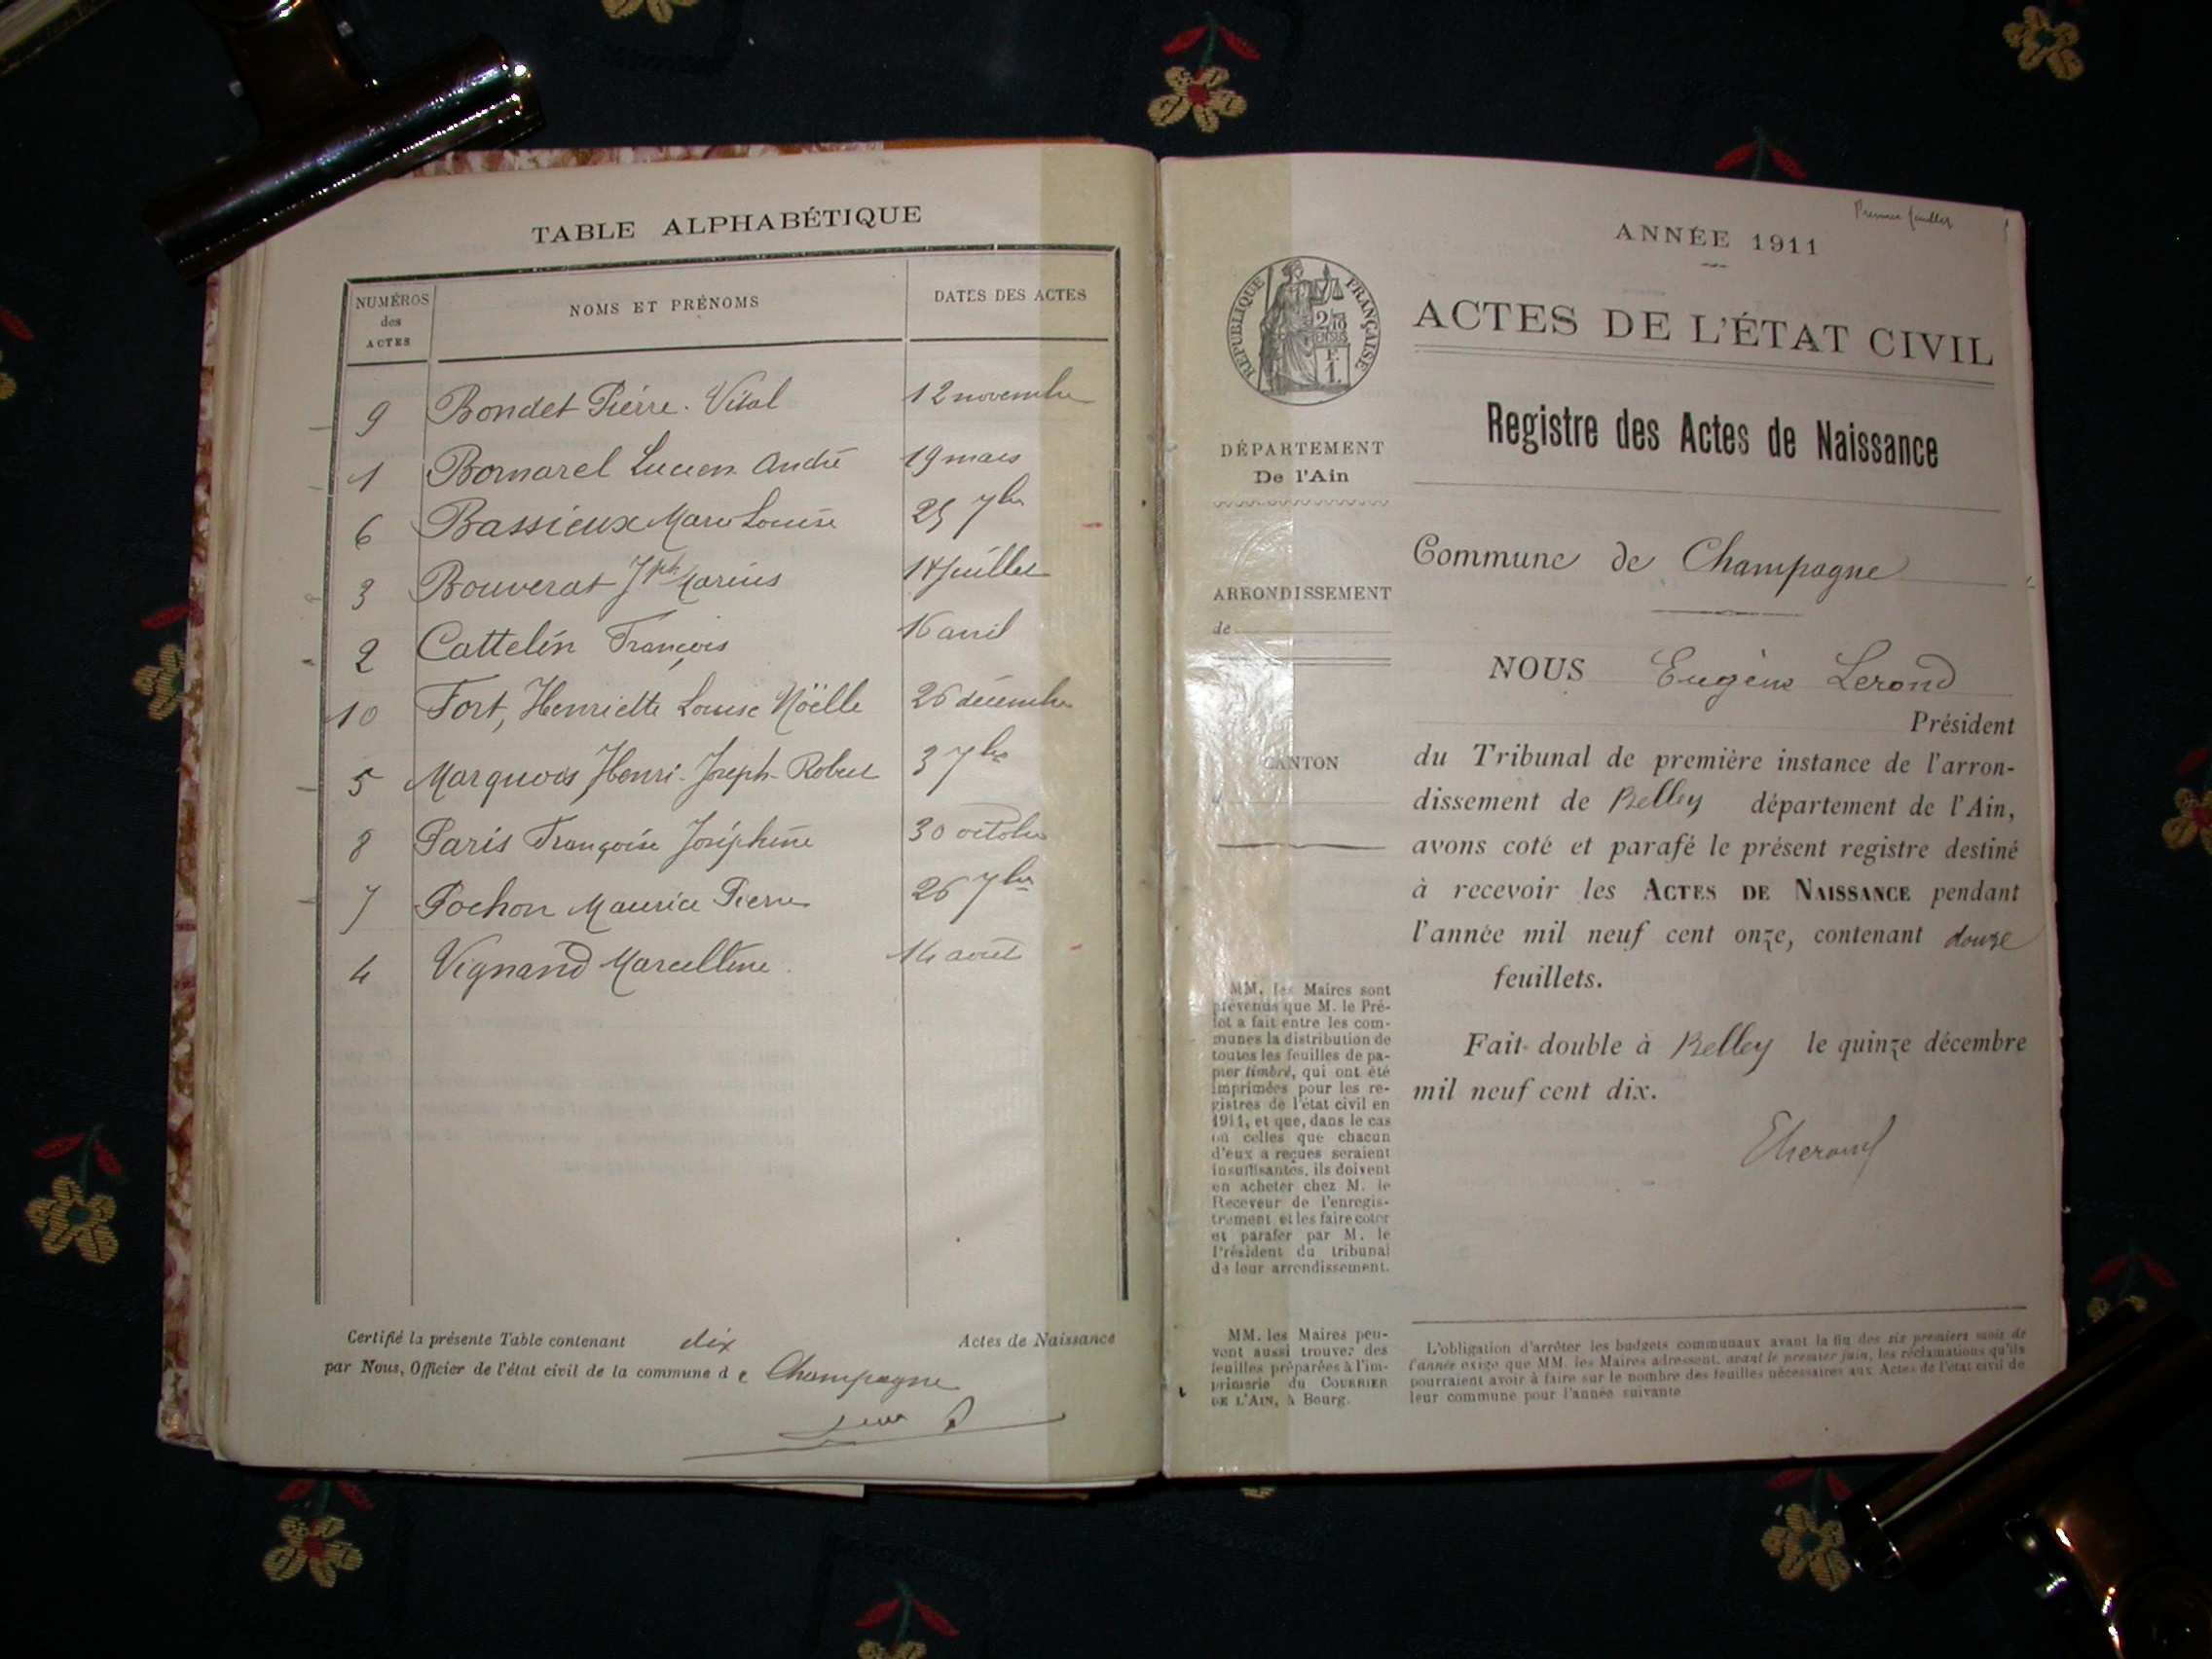 TABLE ALPHABÉTIQUE
NUMÉROS
des
ACTES
NOMS ET PRÉNOMS
DATES DES ACTES
9 Bondet Pierre. Vital 12 novembre
1 Bornarel Lucien André 19 mars
6 Bassieux Marie Louise 25 7bre
3 Bouverat Jph Marius 14 Juillet
2 Cattelin François 16 avril
10 Fort, Henriette Louise Noëlle 26 décembre
5 Marquois Henri-Joseph-Robert 3 7bre
8 Paris Françoise Joséphine 30 octobre
7 Pochon Maurice Pierre 26 7bre
4 Vignand Marcelline 14 août
Certifié la présente Table contenant dix Actes de Naissance
par Nous, Officier de l'état civil de la commune d e Champagne
Premier feuillet
ANNÉE 1911
RÉPUBLIQUE FRANÇAISE
2/10
EN SUS
F.
1.
ACTES DE L'ÉTAT CIVIL
Registre des Actes de Naissance
DÉPARTEMENT
De l'Ain
ARRONDISSEMENT
de
CANTON
Commune de Champagne
NOUS Eugène Lerond
Président
du Tribunal de première instance de l'arron-
dissement de Belley département de l'Ain,
avons coté et parafé le présent registre destiné
à recevoir les ACTES DE NAISSANCE pendant
l'année mil neuf cent onze, contenant douze
feuillets.
Fait double à Belley le quinze décembre
mil neuf cent dix.
ELerond
MM. les Maires sont
prévenus que M. le Pré-
fet a fait entre les com-
munes la distribution de
toutes les feuilles de pa-
pier timbré, qui ont été
imprimées pour les re-
gistres de l'état civil en
1911, et que, dans le cas
où celles que chacun
d'eux a reçues seraient
insuffisantes, ils doivent
en acheter chez M. le
Receveur de l'enregis-
trement et les faire coter
et parafer par M. le
Président du tribunal
de leur arrondissement.
MM. les Maires peu-
vent aussi trouver des
feuilles préparées à l'im-
primerie du COURRIER
DE L'AIN, à Bourg.
L'obligation d'arrêter les budgets communaux avant la fin des six premiers mois de
l'année exige que MM. les Maires adressent, avant le premier juin, les réclamations qu'ils
pourraient avoir à faire sur le nombre des feuilles nécessaires aux Actes de l'état civil de
leur commune pour l'année suivante